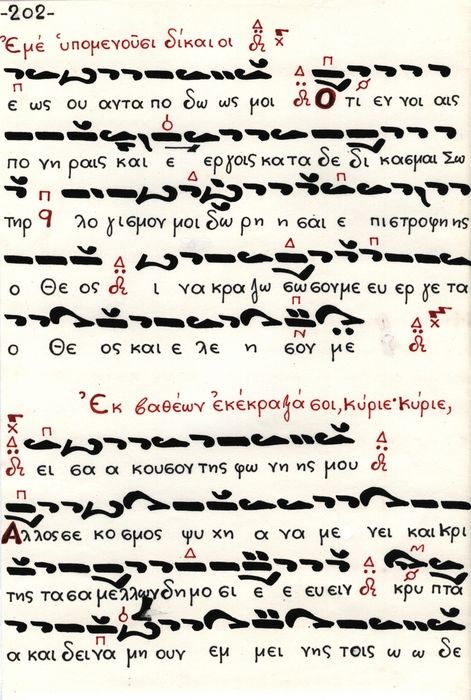 -202-
Ἐμέ ὑπομενοῦσι δίκαιοι
ε ως ου αντα πο δω ως μοι Ο τι εν νοι αις
πο νη ραις και ε εργοις κα τα δε δι κασμαι Σω
τηρ λο γισμον μοι δω ρη η σαι ε πιστροφης
ο Θε ος ι να κρα ζω σωσουμε ευ ερ γε τα
ο Θε ος και ε λε η σον με
Ἐκ βαθέων ἐκέκραξά σοι, κύριε· κύριε,
ει σα α κουσου της φω νη ης μου
Αλλος σε κο σμος ψυ χη α να με νει και κρι
της τα σα μελλων δη μο σι ε ε ευειν κρυ πτα
α και δεινα μη ουν εμ μει νης τοις ω ω δε